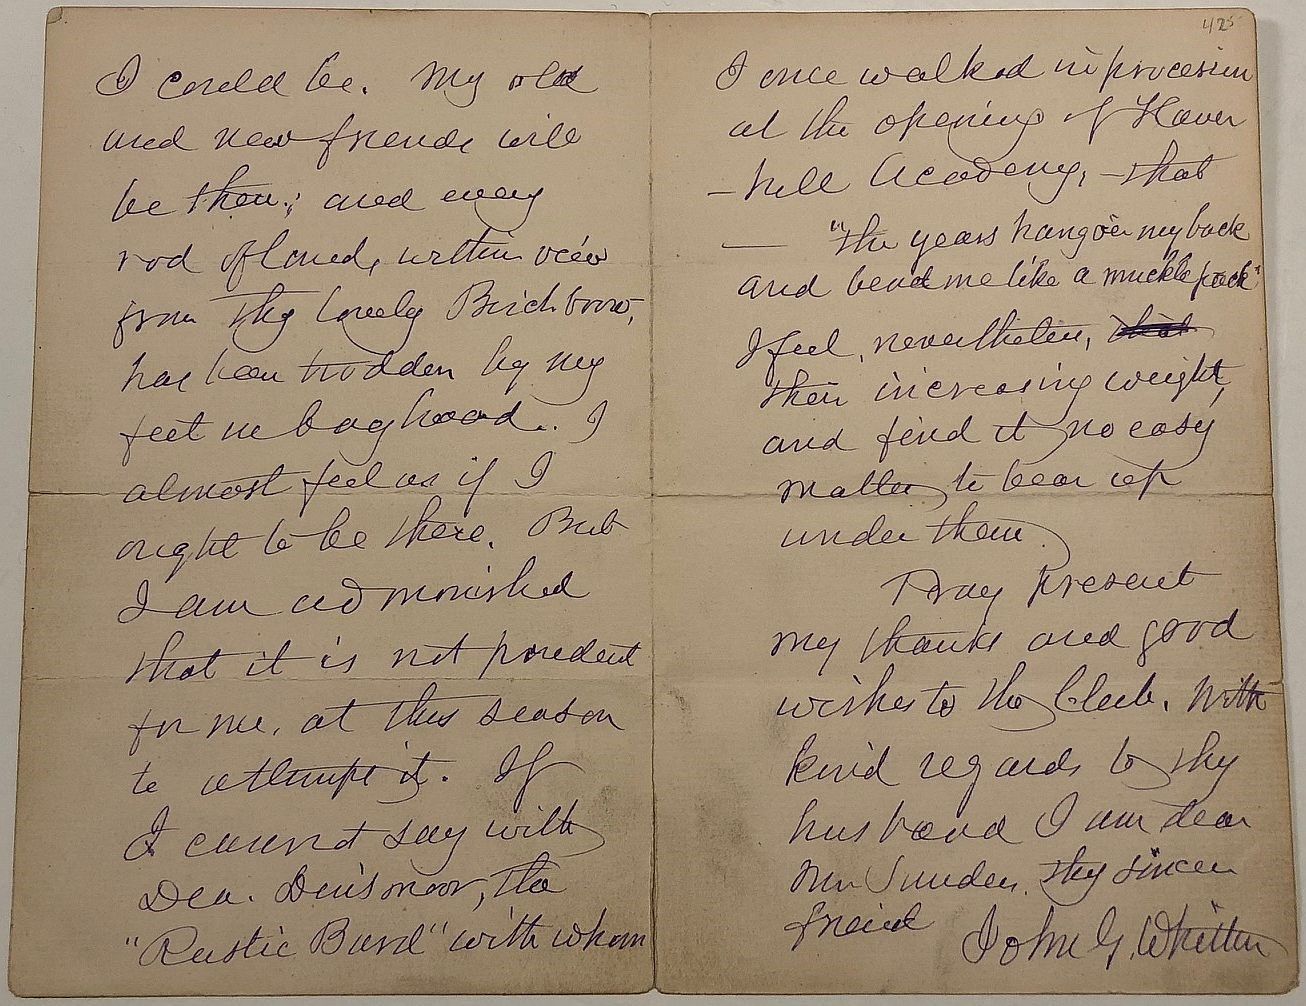 I could be. My old
and new friends will
be there; and every
rod of land, within view
from thy lovely Birchbrow,
has been trodden by my
feet in boyhood. I
almost feel as if I
ought to be there. But
I am admonished
that it is not prudent
for me, at this season
to attempt it. If
I cannot say with
Dea. Dinsmoor, the
"Rustic Bard" with whom
425
I once walked in procession
at the opening of Haver
-hill Academy, - that
— "The years hang o'er my back
and bend me like a muckle pack"
I feel, nevertheless, that
their increasing weight,
and find it no easy
matter to bear up
under them.
Pray present
my thanks and good
wishes to the Club. With
kind regards to thy
husband I am dear
Mrs thy sincere
friend John G. Whittier